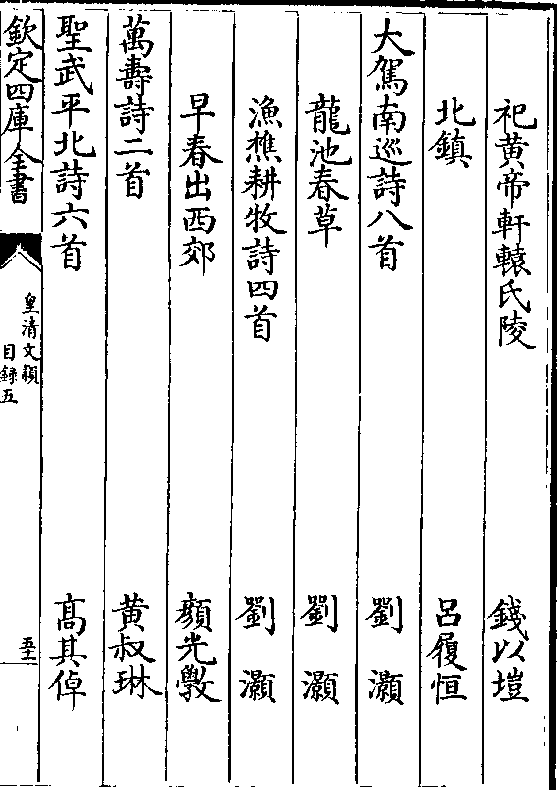 祀黄帝軒轅氏陵　錢以塏
北鎮　吕履恒
大駕南巡詩八首　劉灝
龍池春草　劉灝
漁樵耕牧詩四首　劉灝
早春出西郊　顔光斆
萬壽詩二首　黄叔琳
聖武平北詩六首　高其倬
欽定四庫全書
皇清文穎
目録五